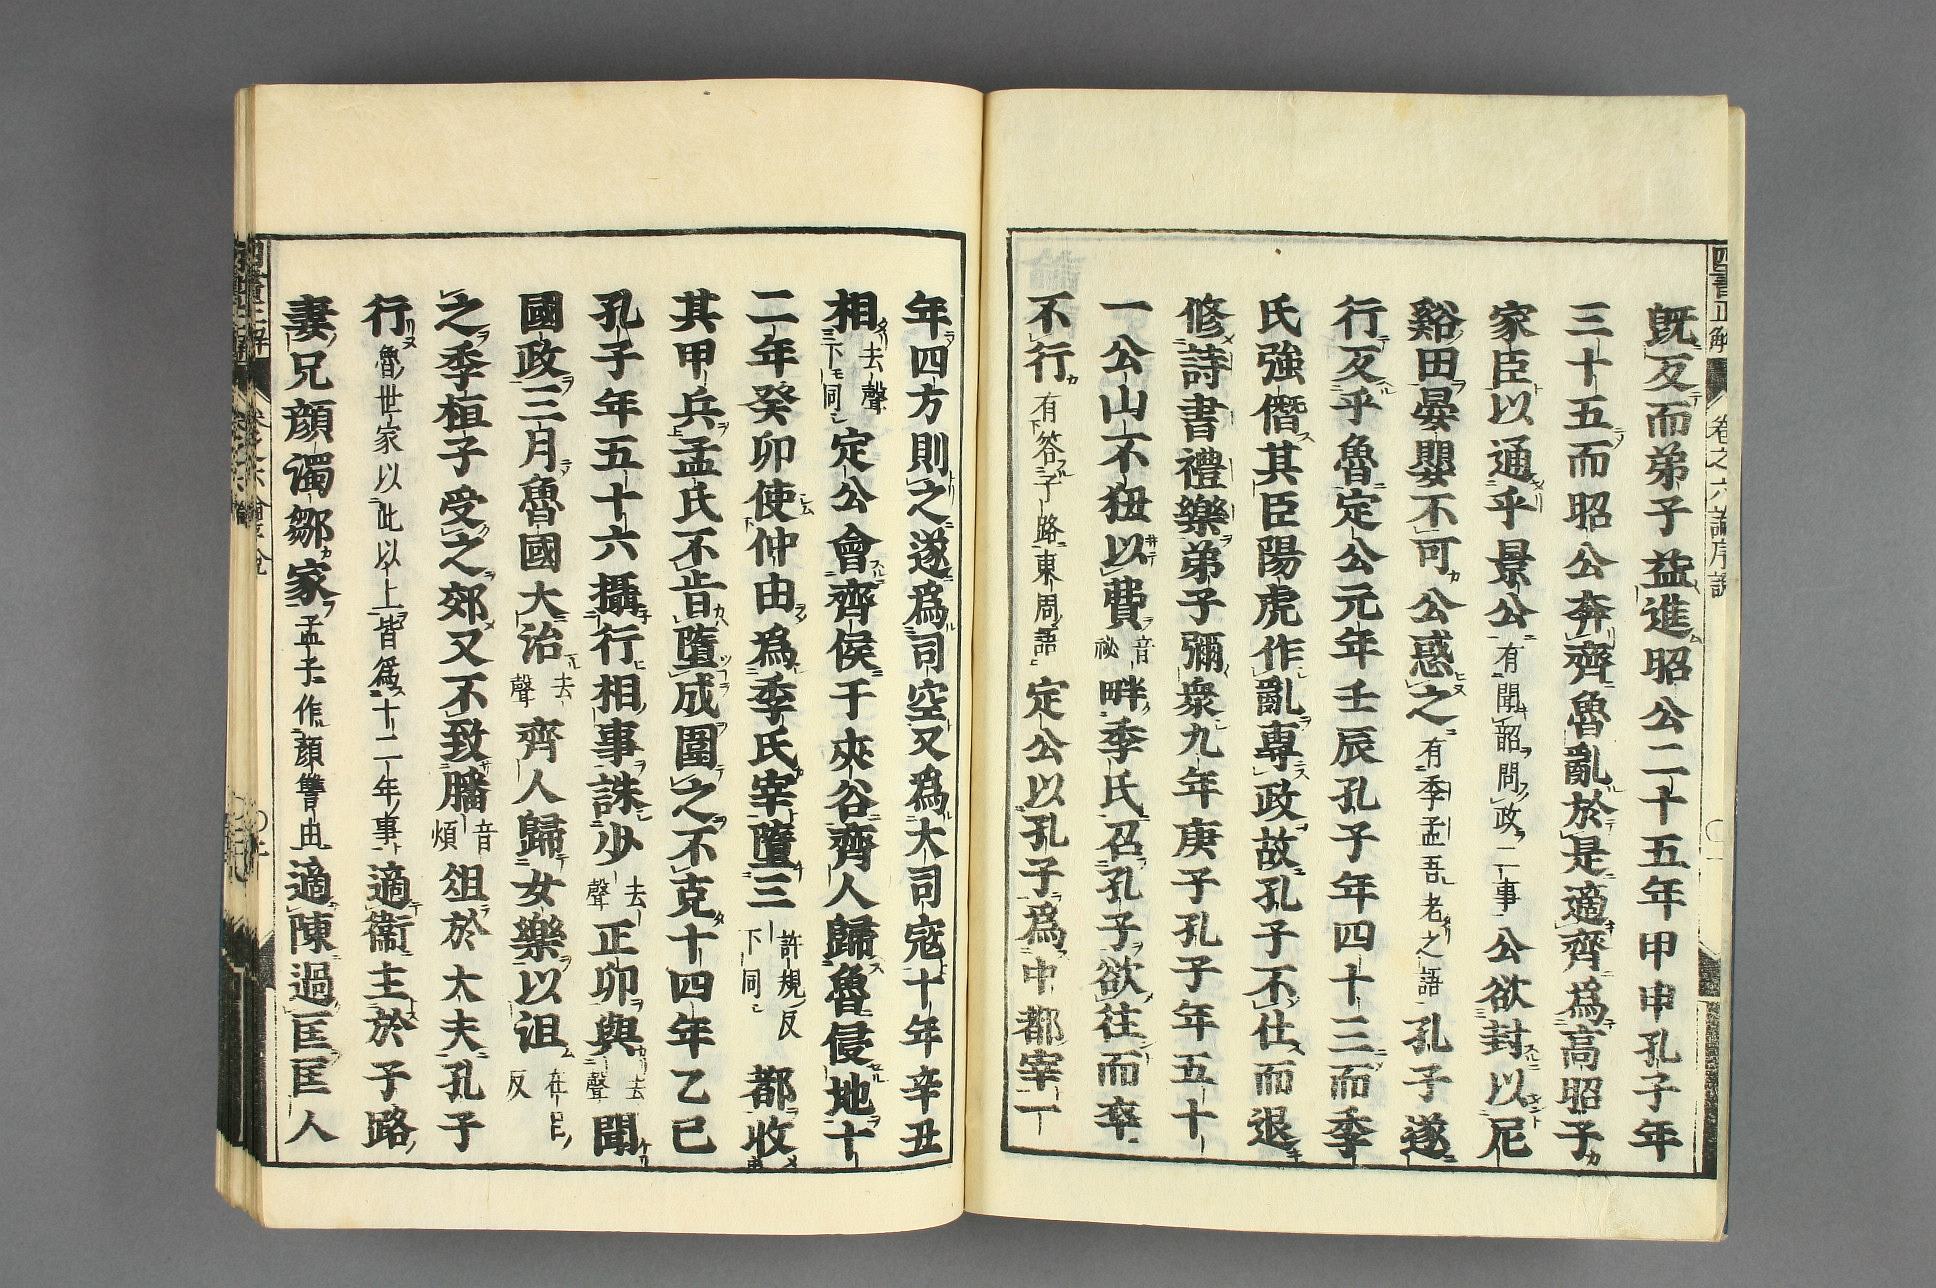 四書正解 卷之六 論序説
既反而弟子益進昭公二十五年甲申孔子年
三十五而昭公奔齊魯亂於是適齊爲高昭子
家臣以通乎景公有聞韶問政二事公欲封以尼
谿田晏嬰不可公惑之有季孟吾老之語孔子遂
行反乎魯定公元年壬辰孔子年四十三而季
氏強僭其臣陽虎作亂專政故孔子不仕而退
修詩書禮樂弟子彌衆九年庚子孔子年五十
一公山不狃以費音祕畔季氏召孔子欲往而卒
不行有答子路東周語定公以孔子爲中都宰一
年四方則之遂爲司空又爲大司寇十年辛丑
相去聲下同定公會齊侯于夾谷齊人歸魯侵地十
二年癸卯使仲由爲季氏宰墮三許規反下同都收
其甲兵孟氏不肯墮成圍之不克十四年乙巳
孔子年五十六攝行相事誅少去聲正卯與去聲聞
國政三月魯國大治去聲齊人歸女樂以沮在呂反
之季桓子受之郊又不致膰音煩俎於大夫孔子
行魯世家以此以上皆爲十二年事適衛主於子路
妻兄顏濁鄒家孟子作顏讐由適陳過匡匡人